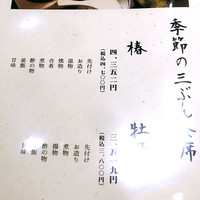 季節の三ぶん会席
椿
四、三五二円
(税込四、七〇〇円)
先付け
お造り
煮物
合肴
焼物
揚物
酢の物
釜飯
甘味
牡
三、五一九円
(税込三、八〇〇円)
先付け
お造り
煮物
揚物
酢の物
飯
甘味